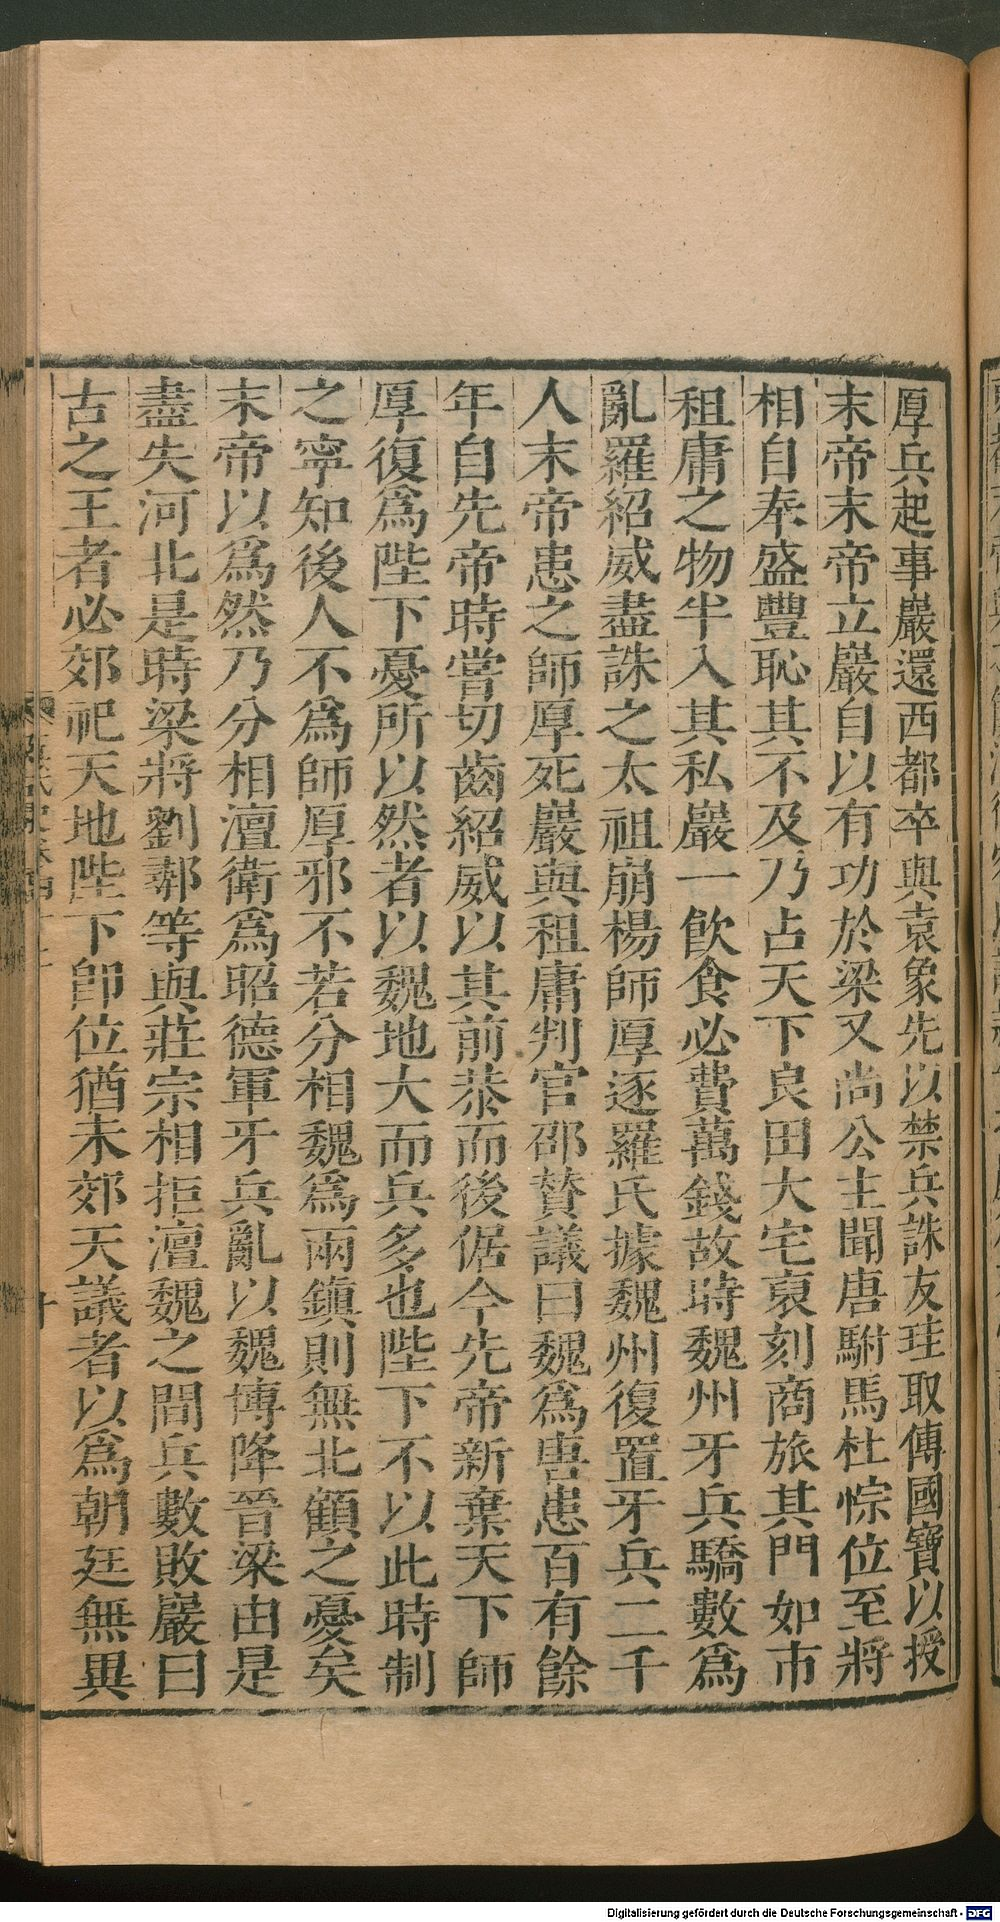 厚兵起事巖還西都卒與袁象先以禁兵誅友珪取傳國寶以授
末帝末帝立巖自以有功於梁又尚公主聞唐駙馬杜悰位至將
相自奉盛豐恥其不及乃占天下良田大宅裒刻商旅其門如市
租庸之物半入其私巖一飲食必費萬錢故時魏州牙兵驕數為
亂羅紹威盡誅之太祖崩楊師厚逐羅氏據魏州復置牙兵二千
人末帝患之師厚死巖與租庸判官邵贊議曰魏為唐患百有餘
年自先帝時嘗切齒紹威以其前恭而後倨今先帝新棄天下師
厚復為陛下憂所以然者以魏地大而兵多也陛下不以此時制
之寧知後人不為師厚邪不若分相魏為兩鎮則無北顧之憂矣
末帝以為然乃分相澶衛為昭德軍牙兵亂以魏博降晉梁由是
盡失河北是時梁將劉鄩等與莊宗相拒澶魏之間兵數敗巖曰
古之王者必郊祀天地陛下卽位猶未郊天議者以為朝廷無異
Digitalisierung gefördert durch die Deutsche Forschungsgemeinschaft - DFG